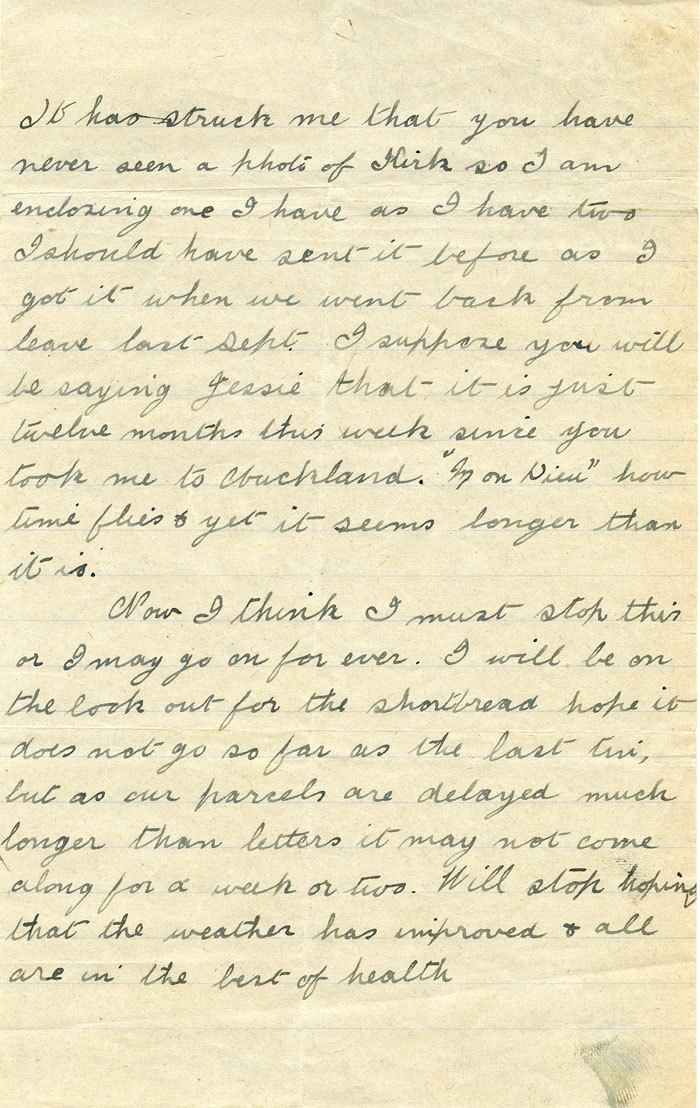 It has struck me that you have
never seen a photo of Kirk so I am
enclosing one I have as I have two
I should have sent it before as I
got it when we went back from
leave last Sept. I suppose you will
be saying Jessie that it is just
twelve months this week since you
took me to Auckland. "Mon Dieu" how
time flies & yet it seems longer than
it is.
Now I think I must stop this
or I may go on for ever. I will be on
the look out for the shortbread hope it
does not go so far as the last tin,
but as our parcels are delayed much
longer than letters it may not come
along for a week or two. Will stop hoping
that the weather has improved & all
are in the best of health